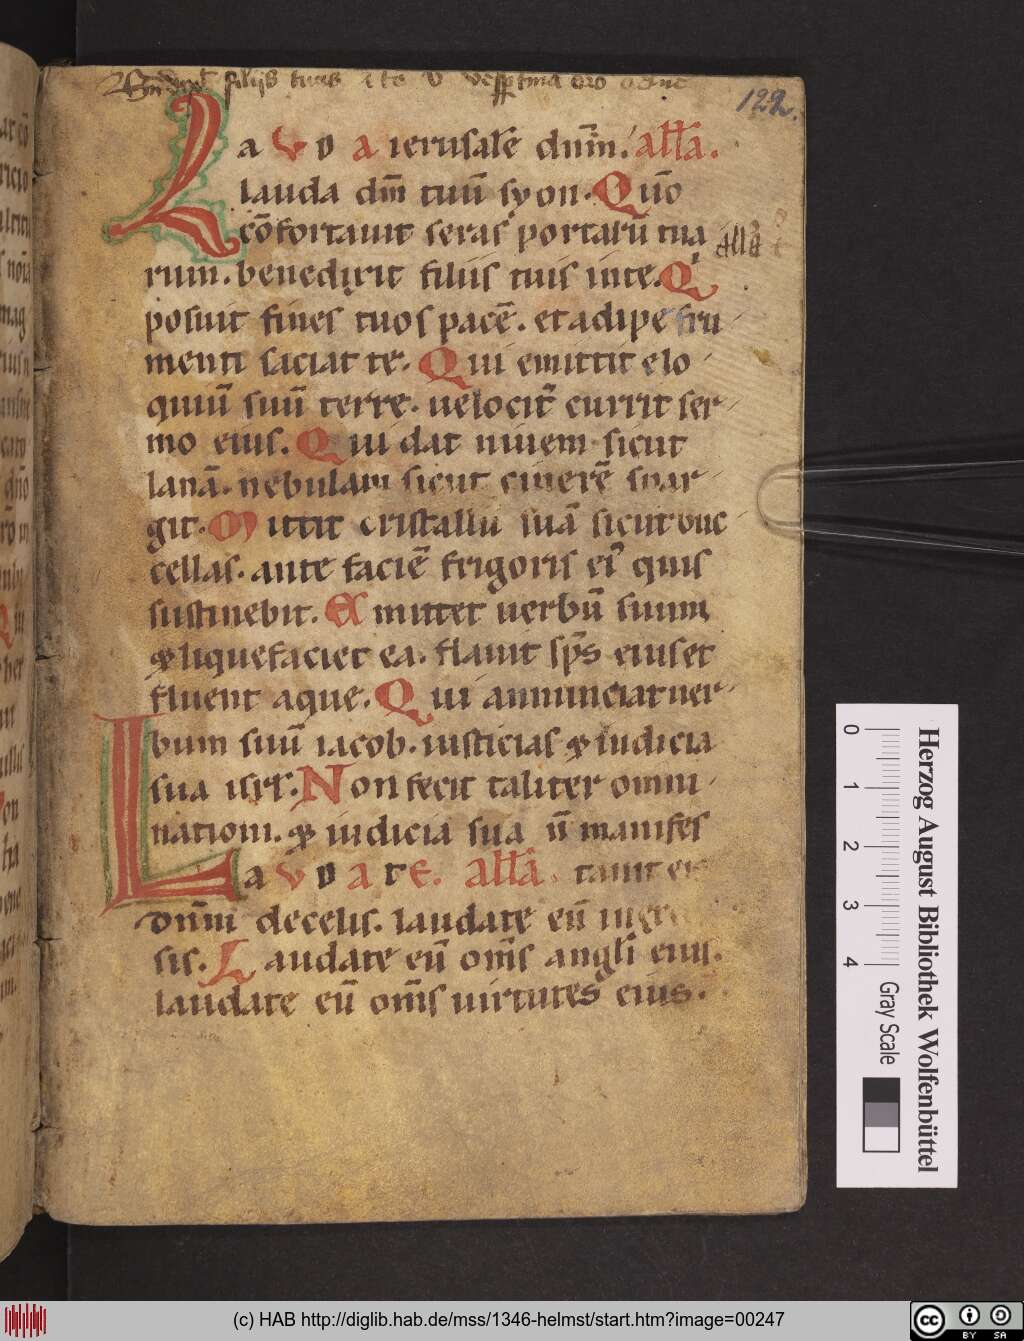 filijs tuis
122.
Lauda ierusalē dnm̄. all̄a.
lauda dm̄ tuū syon. Qūo
cōfortauit seras portarū tua
all̄a
rum. benedixit filiis tuis inte. Q'
posuit fines tuos pacē. et adipe fru
menti saciat te. Qui emittit elo
quiū suū terre. uelocit̄ currit ser
mo eius. Qui dat niuem sicut
lanā. nebulam sicut cinerē spar
git. Mittit cristallū suā sicut buc
cellas. ante faciē frigoris ei' quis
sustinebit. Et mittet uerbū suum
⁊ liquefaciet ea. flauit sp̄s eius et
fluent aque. Qui annunciat uer
bum suū iacob. iusticias ⁊ iudicia
sua isrl'. Non fecit taliter omni
nationi. ⁊ iudicia sua n̄ manifes
Laudate. all̄a. tauit eis
Dnm̄ decelis. laudate eū in excel
sis. Laudate eū om̄s angli eius.
laudate eū om̄s uirtutes eius.
0 1 2 3 4
Gray Scale
Herzog August Bibliothek Wolfenbüttel
(c) HAB http://diglib.hab.de/mss/1346-helmst/start.htm?image=00247
cc BY SA